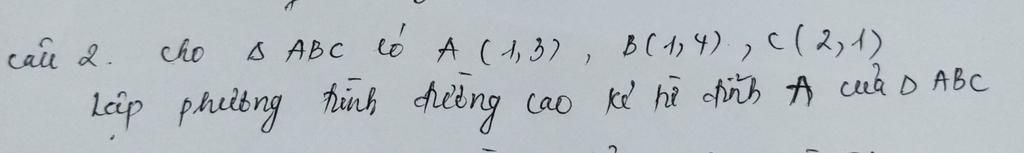 câu 2. cho Δ ABC có A (1,3), B(1,4), C(2,1)
Lập phương trình đường cao kẻ từ đỉnh A của Δ ABC